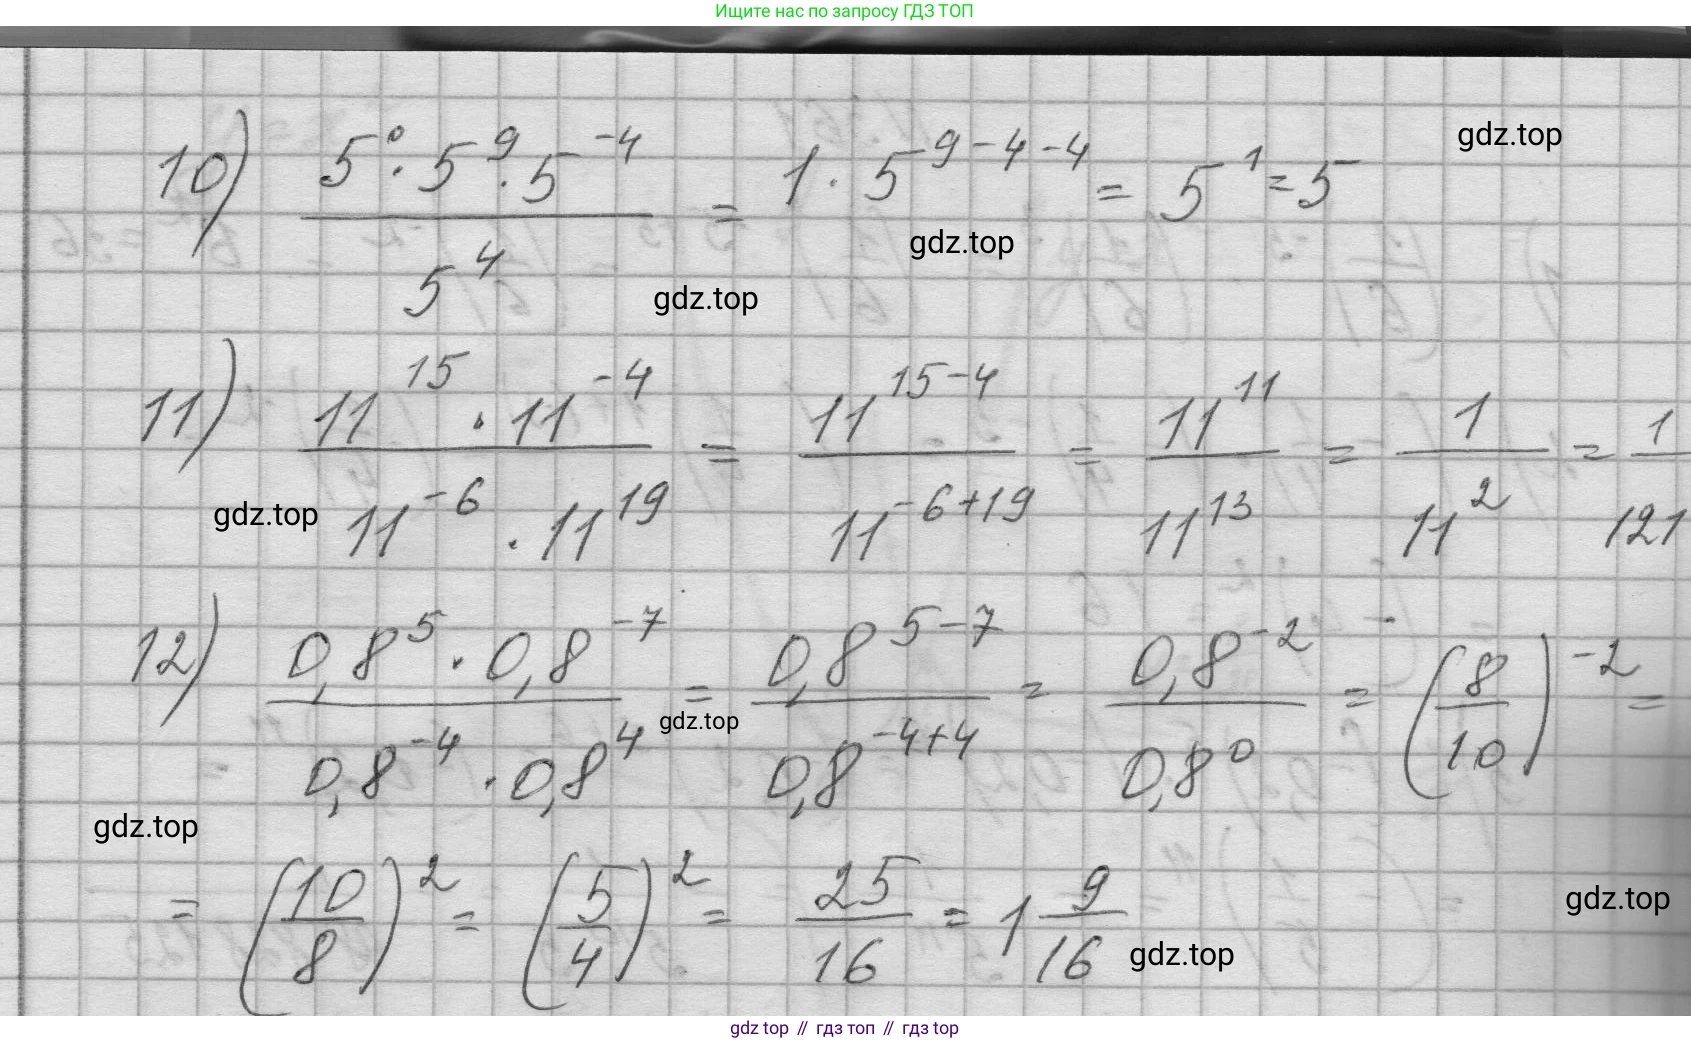 Ищите нас по запросу ГДЗ ТОП
gdz.top
10) (5^0 · 5^9 · 5^-4)/(5^4) = 1 · 5^(9-4-4) = 5^1 = 5
gdz.top
gdz.top
11) (11^15 · 11^-4)/(11^-6 · 11^19) = 11^(15-4)/11^(-6+19) = 11^11/11^13 = 1/11^2 = 1/121
gdz.top
12) (0,8^5 · 0,8^-7)/(0,8^-4 · 0,8^4) = 0,8^(5-7)/0,8^(-4+4) = 0,8^-2/0,8^0 = (8/10)^-2 =
gdz.top
gdz.top
= (10/8)^2 = (5/4)^2 = 25/16 = 1 9/16
gdz.top
gdz.top
gdz top // гдз топ // гдз top